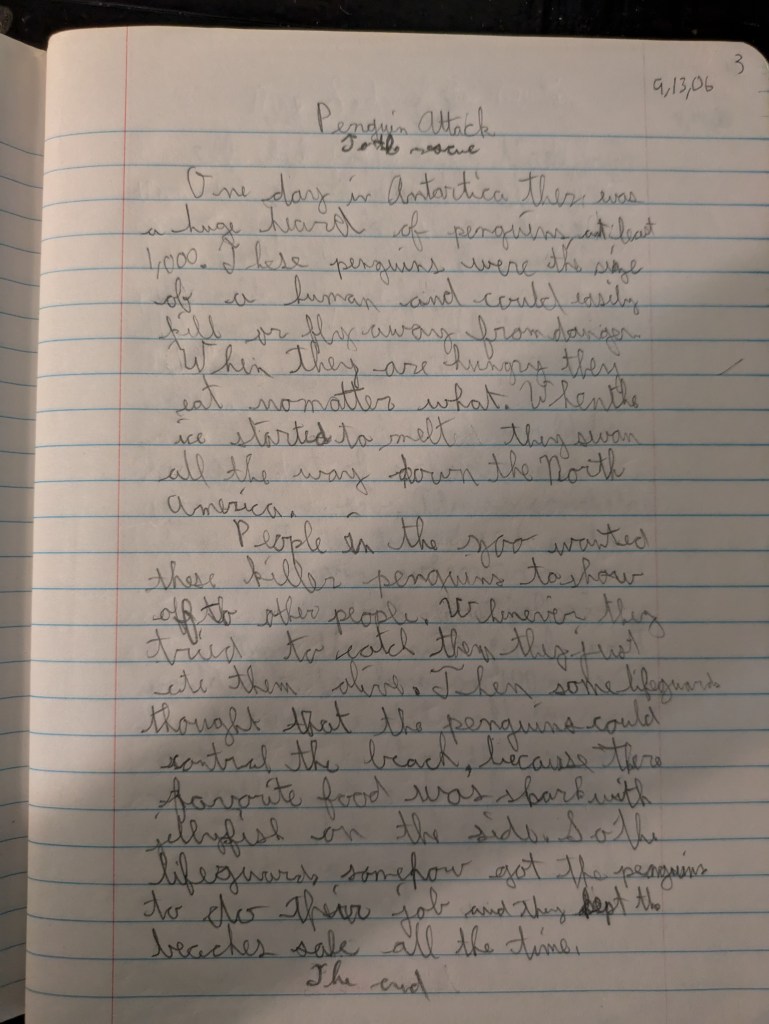 3
9,13,06
Penguin Attack
To the rescue
One day in Antartica ther was
a huge heard of penguins, at least
1,000. These penguins were the size
of a human and could easily
kill or fly away from danger.
When they are hungry they
eat nomatter what. When the
ice started to melt they swan
all the way down the North
America.
People in the zoo wanted
these killer penguins to show
off to other people. Whenever they
tried to catch them they just
ate them alive. Then some lifeguards
thought that the penguins could
control the beach, because there
favorite food was shark with
jellyfish on the side. So the
lifeguards somehow got the penguins
to do their job and they kept the
beaches safe all the time.
The end